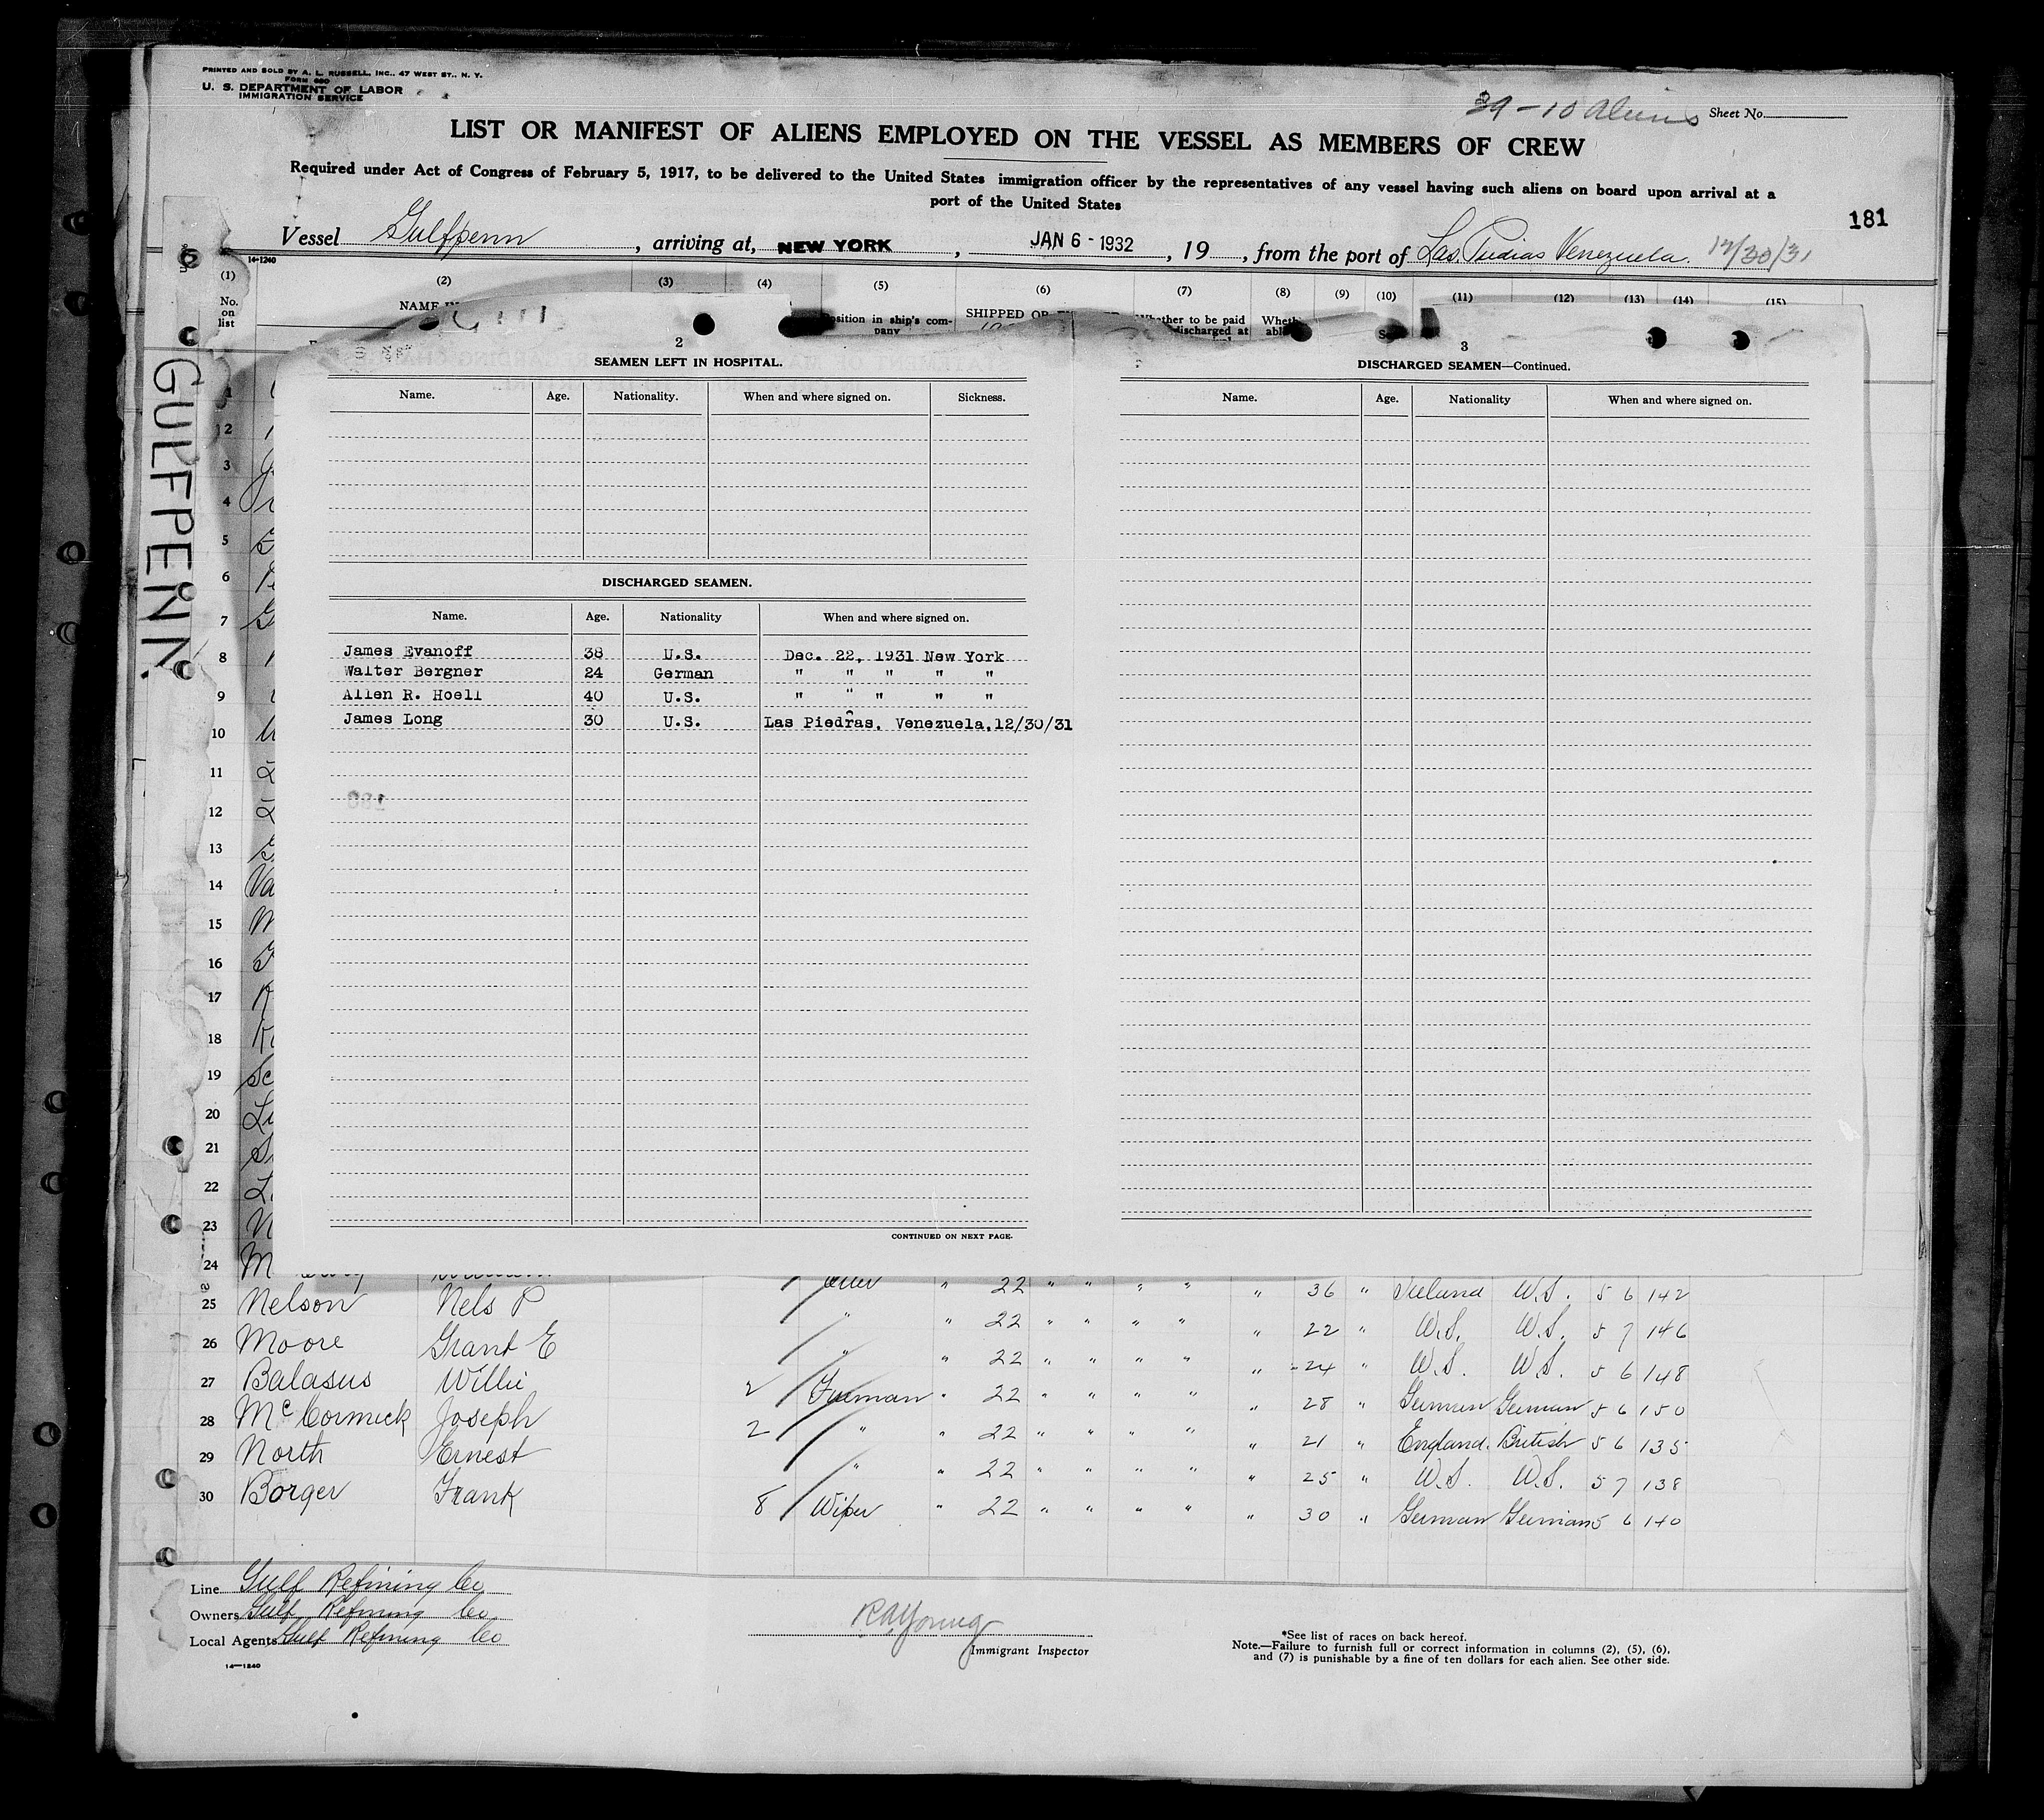 PRINTED AND SOLD BY A. L. RUSSELL, INC., 47 WEST ST., N. Y.
FORM 680
U. S. DEPARTMENT OF LABOR
IMMIGRATION SERVICE
39-10 Aliens Sheet No.
LIST OR MANIFEST OF ALIENS EMPLOYED ON THE VESSEL AS MEMBERS OF CREW
Required under Act of Congress of February 5, 1917, to be delivered to the United States immigration officer by the representatives of any vessel having such aliens on board upon arrival at a
port of the United States
181
Vessel Gulfpenn, arriving at, NEW YORK, JAN 6 - 1932, 19, from the port of Las Piedras Venezuela. 12/30/31
14-1240
(1) (2) (3) (4) (5) (6) (7) (8) (9) (10) (11) (12) (13) (14) (15)
No. on list
GULFPENN.
2
SEAMEN LEFT IN HOSPITAL.
Name. Age. Nationality. When and where signed on. Sickness.
DISCHARGED SEAMEN.
Name. Age. Nationality When and where signed on.
James Evanoff 38 U.S. Dec. 22, 1931 New York
Walter Bergner 24 German " " " " "
Allen R. Hoell 40 U.S. " " " " "
James Long 30 U.S. Las Piedras, Venezuela, 12/30/31
CONTINUED ON NEXT PAGE.
3
DISCHARGED SEAMEN—Continued.
Name. Age. Nationality When and where signed on.
1
2
3
4
5
6
7
8
9
10
11
12
13
14
15
16
17
18
19
20
21
22
23
24 Oiler " 22 " " " " " 36 " Iceland U.S. 5 6 142
25 Nelson Nels P " " 22 " " " " " 22 " U.S. U.S. 5 7 146
26 Moore Grant E " " 22 " " " " " 24 " U.S. U.S. 5 6 148
27 Balasus Willie 2 Fireman " 22 " " " " " 28 " German German 5 6 150
28 McCormick Joseph 2 " " 22 " " " " " 21 " England British 5 6 135
29 North Ernest " " 22 " " " " " 25 " U.S. U.S. 5 7 138
30 Borger Frank 8 Wiper " 22 " " " " " 30 " German German 5 6 140
Line Gulf Refining Co
Owners Gulf Refining Co
Local Agents Gulf Refining Co
14-1240
R A Young
Immigrant Inspector
*See list of races on back hereof.
Note.—Failure to furnish full or correct information in columns (2), (5), (6),
and (7) is punishable by a fine of ten dollars for each alien. See other side.